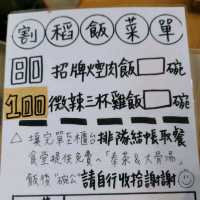 割稻飯菜單
80 招牌爌肉飯 碗
100 微辣三杯雞飯 碗
△填完單至櫃台排隊結帳取餐
食堂提供免費「泰菜&大骨湯」
飯後"碗公"請自行收拾謝謝